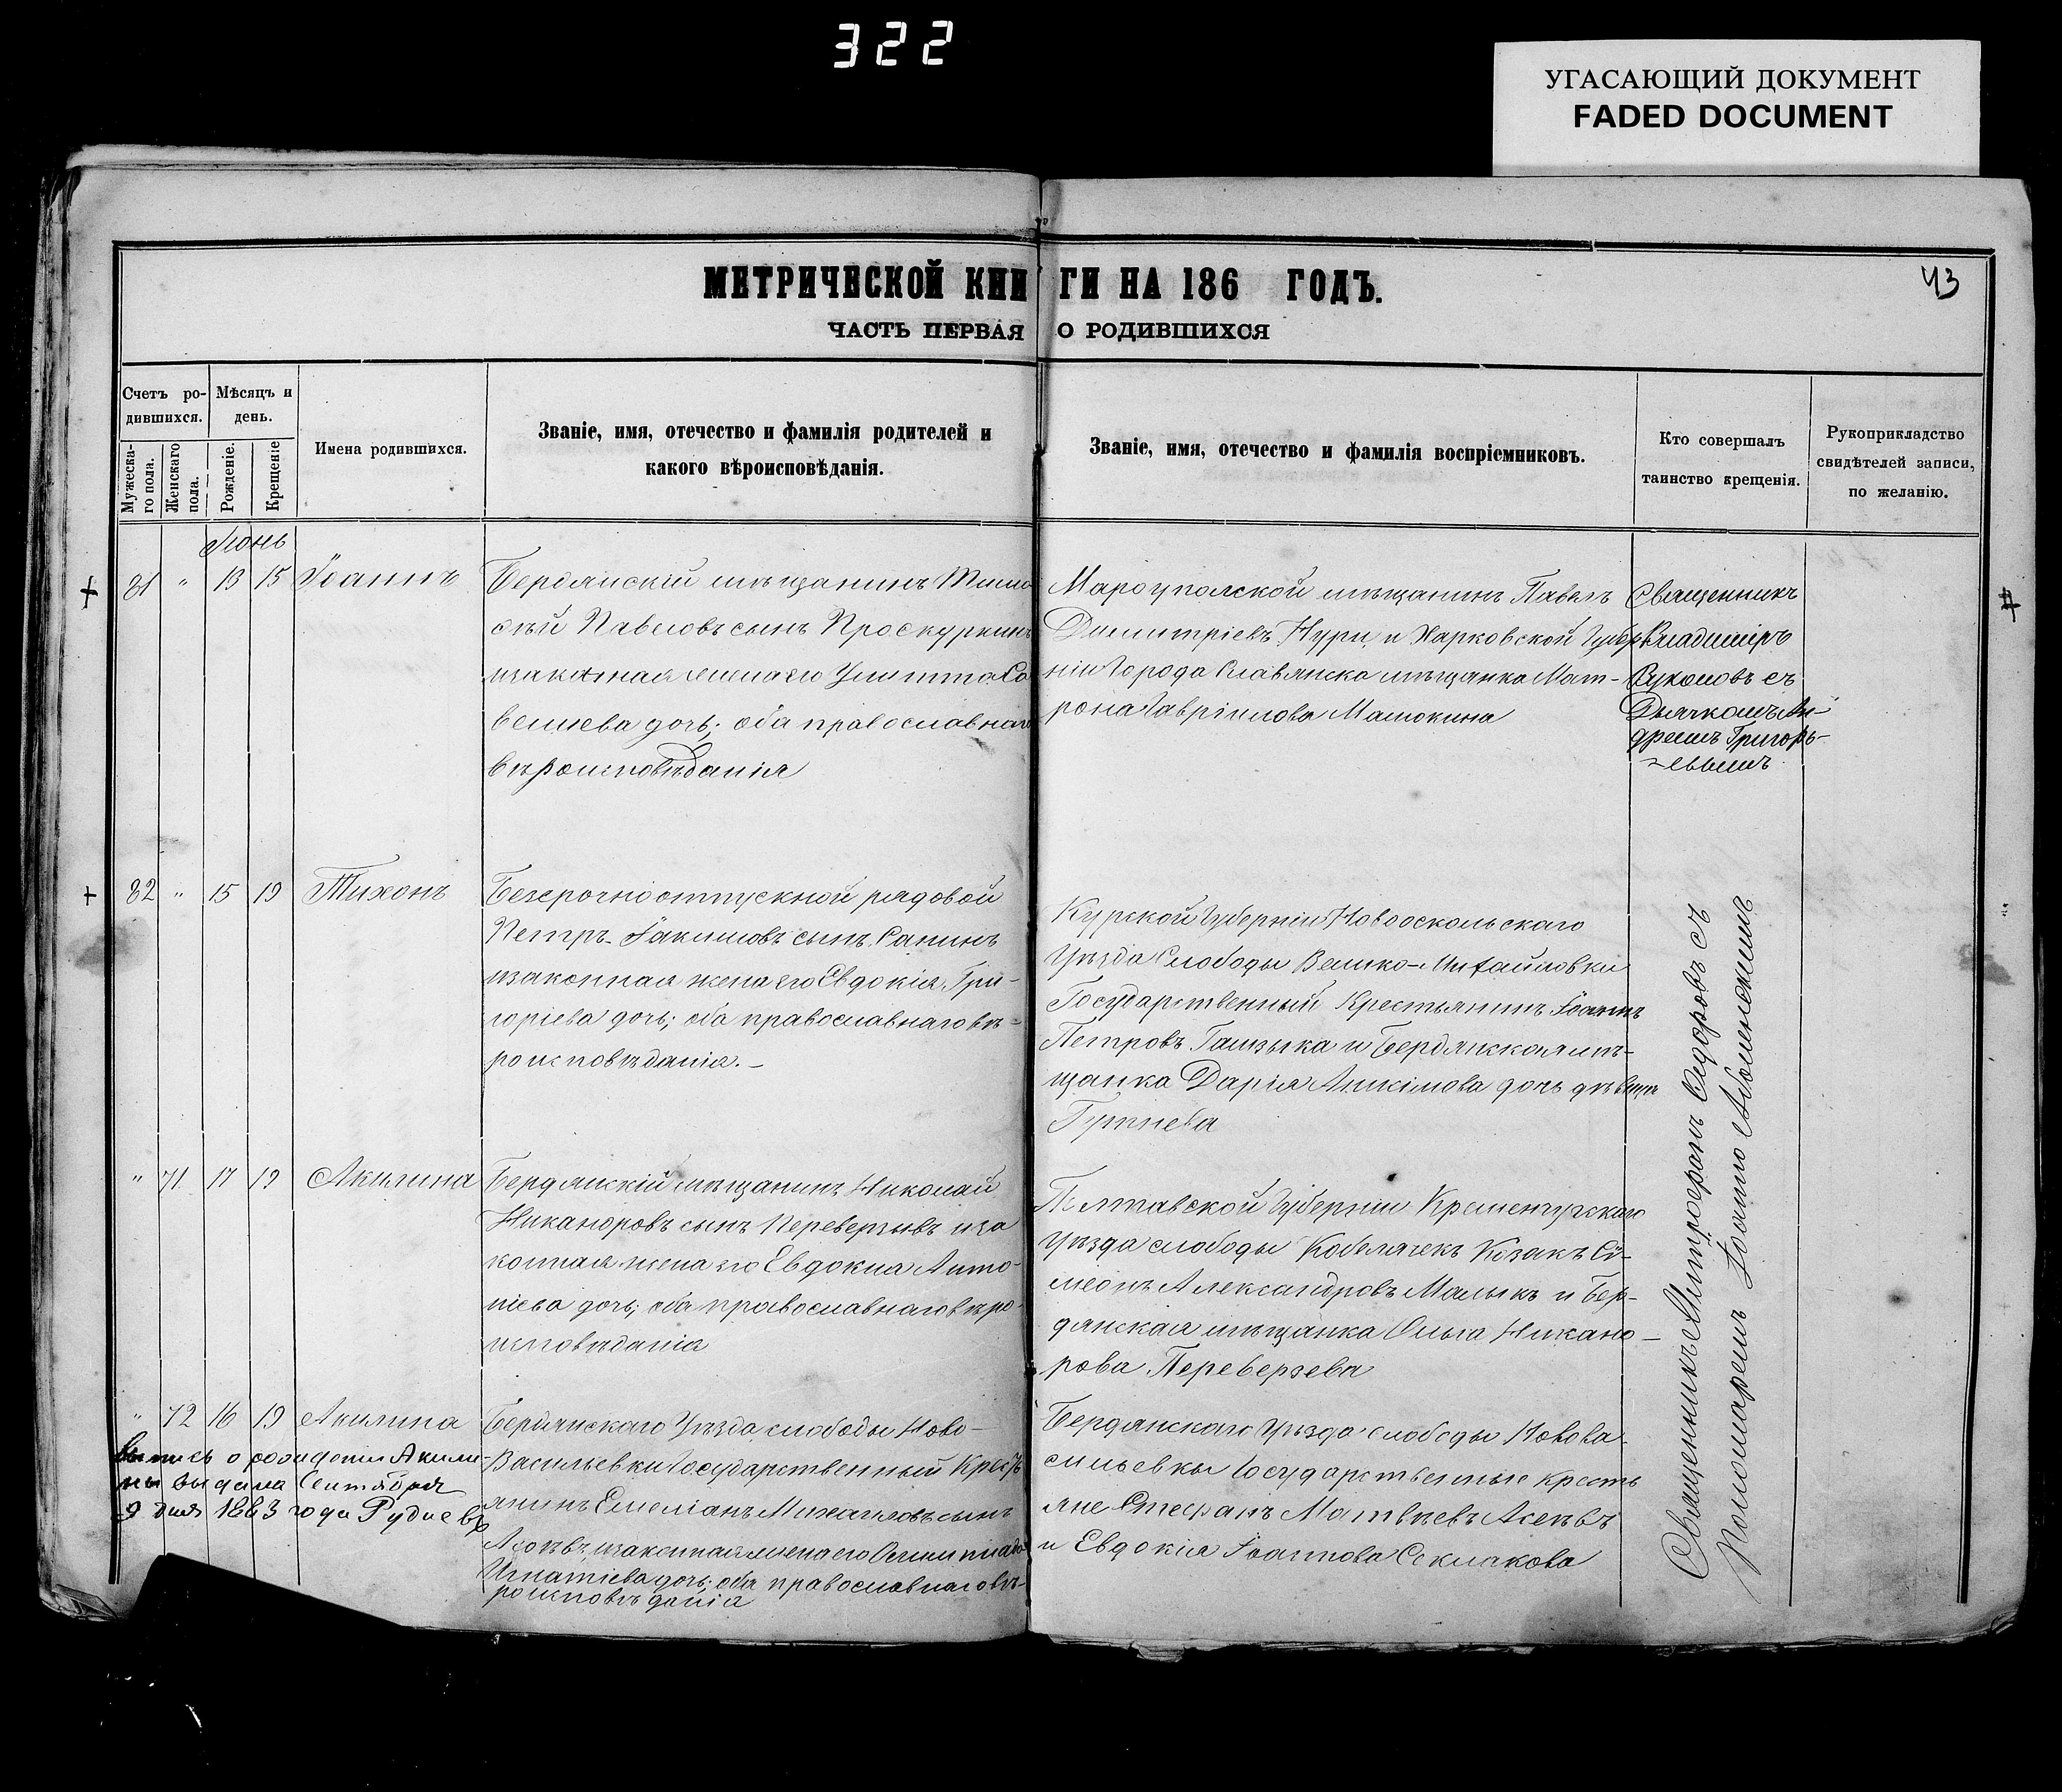 322
УГАСАЮЩИЙ ДОКУМЕНТ
FADED DOCUMENT
43
МЕТРИЧЕСКОЙ КНИГИ НА 186 ГОДЪ.
ЧАСТЬ ПЕРВАЯ О РОДИВШИХСЯ
Счетъ ро-
дившихся.
Мужеска-
го пола.
Женскаго
пола.
Мѣсяцъ и
день.
Рожденіе.
Крещеніе
Имена родившихся.
Званіе, имя, отечество и фамилія родителей и
какого вѣроисповѣданія.
Званіе, имя, отечество и фамилія воспріемниковъ.
Кто совершалъ
таинство крещенія.
Рукоприкладство
свидѣтелей записи,
по желанію.
Іюнь
81 " 13 15 Іоаннъ
Бердянскій мѣщанинъ Тимо
ѳей Павловъ сынъ Проскурнинъ
изаконная жена его
дочь; оба православнаго
вѣроисповѣданія
Мароупольской мѣщанинъ Павелъ
Димитріевъ Нури, и Харковской Губер
ніи Города Славянска мѣщанка Мат-
рона Гавріилова Малюкина
Священникъ
Владиміръ
съ
Дьячкомъ Ан-
дреемъ Григорь-
евымъ
82 " 15 19 Тихонъ
Безсрочноотпускной рядовой
Петръ Іакимовъ сынъ Санинъ
изаконная жена его Евдокія Гри-
горіева дочь; оба православнаго вѣ-
роисповѣданія.-
Курской Губерніи Новооскольскаго
Уѣзда Слободы Велико-Михайловки
Государственный Крестьянинъ Іоаннъ
Петровъ и Бердянская мѣ-
щанка Дарія дочь дѣвица
" 71 17 19 Акилина
Бердянскій мѣщанинъ Николай
Никаноровъ сынъ Переверзевъ иза
конная жена его Евдокиа Анто-
ніева дочь; оба православнаго вѣро-
исповѣданія
Полтавской Губерніи Кременчугскаго
Уѣзда слободы Кобелячекъ Козакъ Си-
меонъ Александровъ Малыкъ и Бер-
дянская мѣщанка Ольга Никано-
рова Переверзева
" 72 16 19 Акилина
Бердянскаго Уѣзда слободы Ново-
Васильевки Государственный Кресть
янинъ Емеліанъ Михаиловъ сынъ
изаконная жена его
Игнатіева дочь; оба православнаго вѣ-
роисповѣданія
Бердянскаго Уѣзда слободы Новова-
сильевки Государственные кресть
яне Стефанъ Матвѣевъ
и Евдокія Іоаннова
Выпись о рождении Акили-
ны выдана Сентября
9 дня 1883 года Рудневъ
Священникъ Митрофанъ Ѳедоровъ съ
Пономаремъ Іоанно